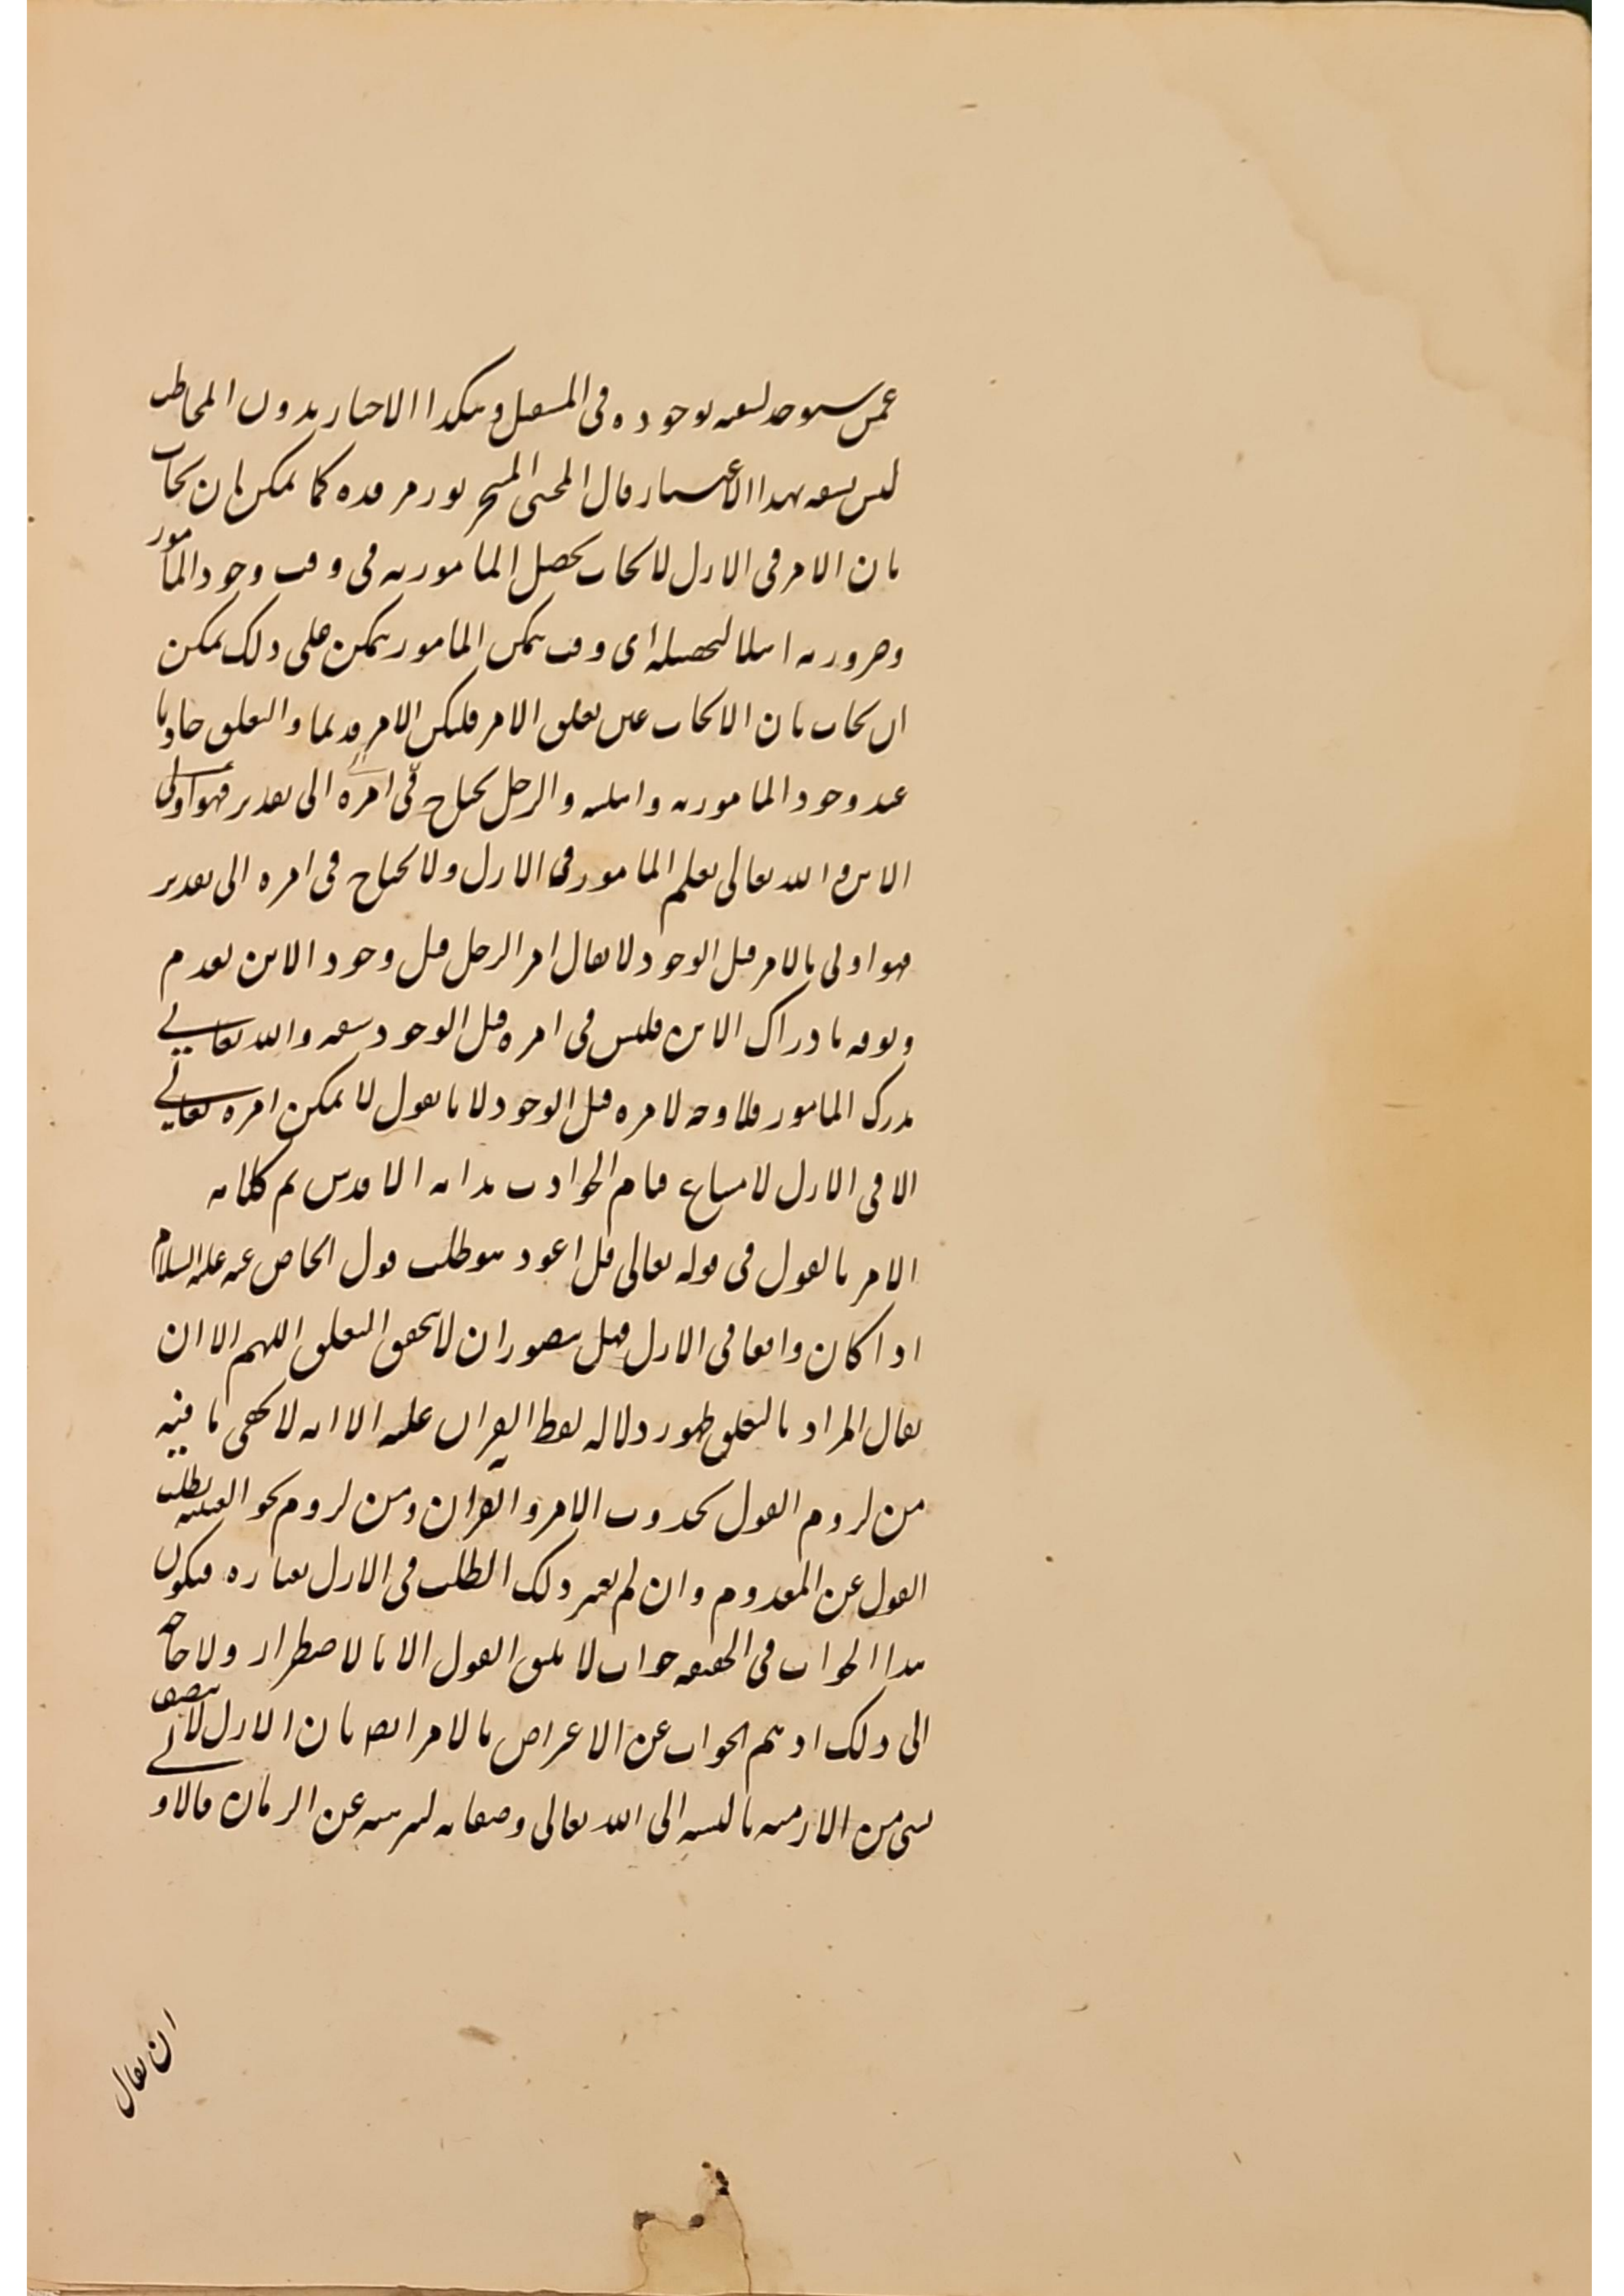 عمن سيوجد لسفه بوجوده فى المستقبل وهكذا الاخبار بدون المخاطب
ليس بسفه بهذا الاعتبار قال المحشى نور مرقده كما يمكن بان يجاب
بان الامر فى الازل لايجاب تحصيل المامور به فى وقت وجود المامور
لتحصيله اى وقت تمكن المامور يمكن على ذلك يمكن
ان يجاب بان الايجاب عين تعلق الامر فليكن الامر قديما والتعلق حادثا
عند وجود المامور به والرجل يحتاج فى امره الى تقدير
الابن والله تعالى يعلم المامور فى الازل ولا يحتاج فى امره الى تقدير
فهو اولى بالامر قبل الوجود لا يقال امر الرجل قبل وجود الابن لعدم
وثوقه بادراك الابن فليس فى امره قبل الوجود سفه والله تعالى
يدرك المامور فلا وجه لامره قبل الوجود لانا نقول لا يمكن امره تعالى
الا فى الازل لامتناع قيام الحوادث بذاته الاقدس تم كلامه
الامر بالقول فى قوله تعالى قل اعوذ هو طلب قول الخاص عنه عليه السلام
اذا كان واقعا فى الازل فهل يتصور ان لا يتحقق التعلق اللهم الا ان
يقال المراد بالتعلق ظهور دلالة لفظ القران عليه الا انه لا يخفى ما فيه
من لزوم القول بحدوث الامر والقران ومن لزوم نحو العبث بطلب
القول عن المعدوم وان لم يعتبر ذلك الطلب فى الازل بعباره فيكون
هذا الجواب فى الحقيقه جواب لا يليق القول الا بالاضطرار ولا حاجه
الى ذلك اذ يتم الجواب عن الاعتراض بالامر ايضا بان الازل لا يتصف
بشى من الازمنه بالنسبه الى الله تعالى وصفاته لتنزيهه عن الزمان فالاولى
ان يقال